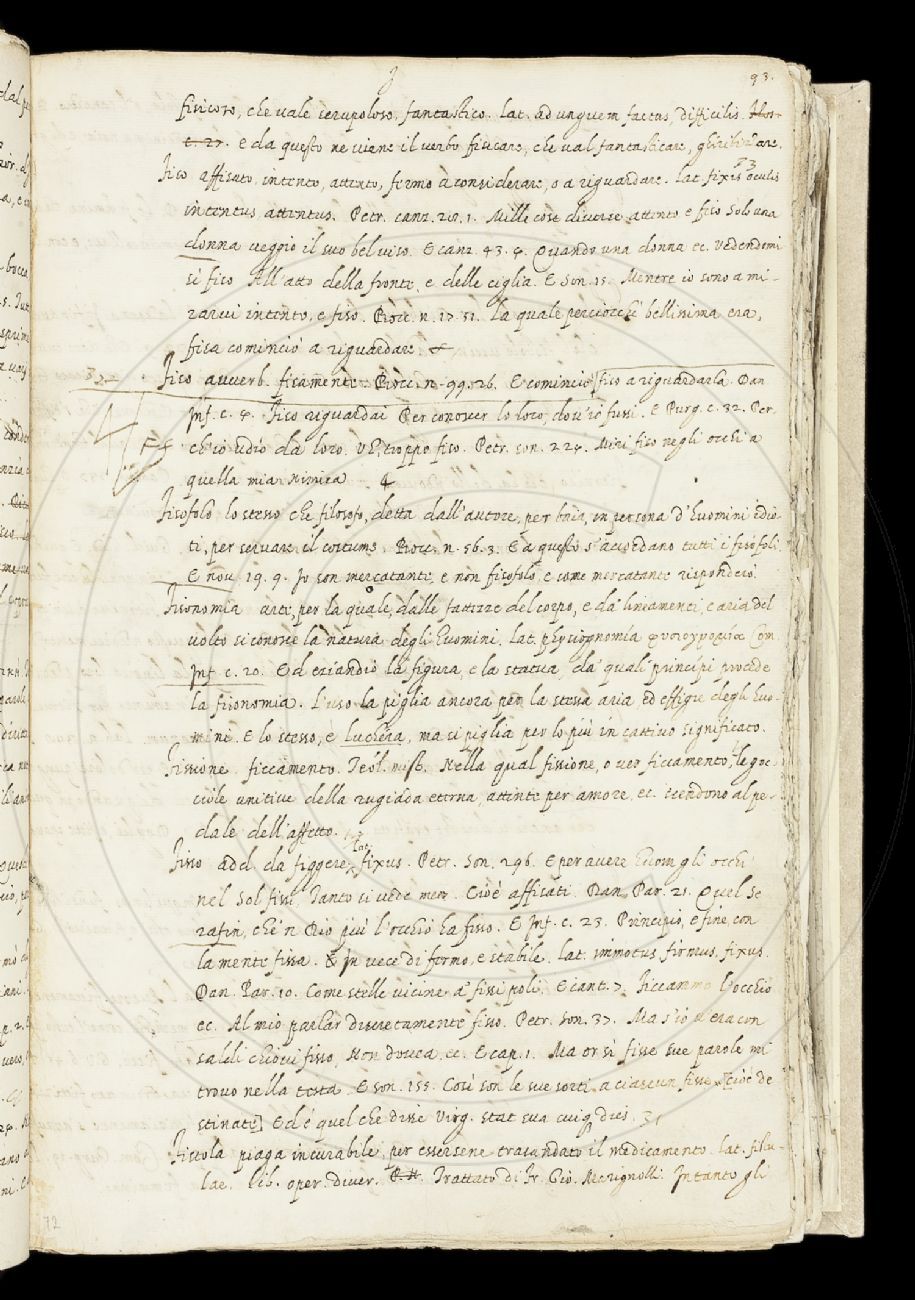 F 93.
fisicoso, che vale scrupoloso, fantastico. lat. ad unguem factus, difficilis.
e da questo ne viene il verbo fisicare, che val fantasticare, ghiribizzare.
Fiso affisato, intento, attento, fermo à considerare, o a riguardare. lat. fixis oculis
intentus, attentus. Petr. canz. 28. 1. Mille cose diverse attento e fiso Solo una
donna veggio il suo bel viso. E canz. 43. 4. Quando una donna ec. vedendomi
sì fiso All'atto della fronte, e delle ciglia. E son. 15. Mentre io sono a mi-
rarvi intento, e fiso. Bocc. n. 17. 51. la quale perciocchè bellissima era,
fisa cominciò a riguardare
322 Fiso avverb. fisamente Bocc. n. 99. 26. E cominciò fiso a riguardarla. Dan
Inf. c. 4. Fiso riguardai Per conoscer lo loco, dov'io fussi. E Purg. c. 32. Per
ch'io udio da loro. Un, troppo fiso. Petr. son. 224. Miri fiso negli occhi a
quella mia Nimica
Fisofolo lo stesso che filosofo, detta dall'autore, per baia, in persona d'huomini idio-
ti, per servare il costume. Bocc. n. 56. 3. E a questo s'accordano tutti i fisofoli.
E nov. 19. 9. Io son mercatante, e non fisofolo, e come mercatante risponderò.
Fisonomia arte, per la quale, dalle fattezze del corpo, e da lineamenti, e aria del
volto si conosce la natura degli huomini. lat. physiognomia Com.
Inf. c. 20. Ed eziandio la figura, e la statua, da quali principi procede
la fisonomia. L'uso la piglia ancora per la stessa aria ed effigie degli huo-
mini. E lo stesso, e luchera, ma si piglia per lo più in cattivo significato.
Fissione ficcamento. Teol. mist. Nella qual fissione, o ver ficcamento, le goc-
ciole unitive della rugiada eterna, attinte per amore, ec. scendono al pe-
dale dell'affetto.
Fisso add. da figgere, lat. fixus. Petr. son. 296. E per avere huom gli occhi
nel Sol fissi, Tanto si vede men. Cioè affisati. Dan. Par. 21. Quel Se
rafin, che 'n Dio più l'occhio ha fisso. E Inf. c. 23. Principio, e fine, con
la mente fissa. E in vece di fermo, e stabile. lat. immotus firmus, fixus.
Dan. Par. 10. Come stelle vicine a' fissi poli. E cant. 7. Ficcammo l'occhio
ec. Al mio parlar discretamente fisso. Petr. son. 37. Ma s'io v'era con
saldi chiovi fisso, Non dovea. ec. E cap. 1. Ma or sì fisse sue parole mi
trovo nella testa. E son. 155. Così son le sue sorti a ciascun fisse [cioè de
stinate] Ed è quel che disse Virg. stat sua cuiq dies. 31
Fistola piaga incurabile, per essersene trasandato il medicamento. lat. fistu-
lae. lib. oper. diver. Trattato di Fr. Gio. Marignolli. Intanto gli
72